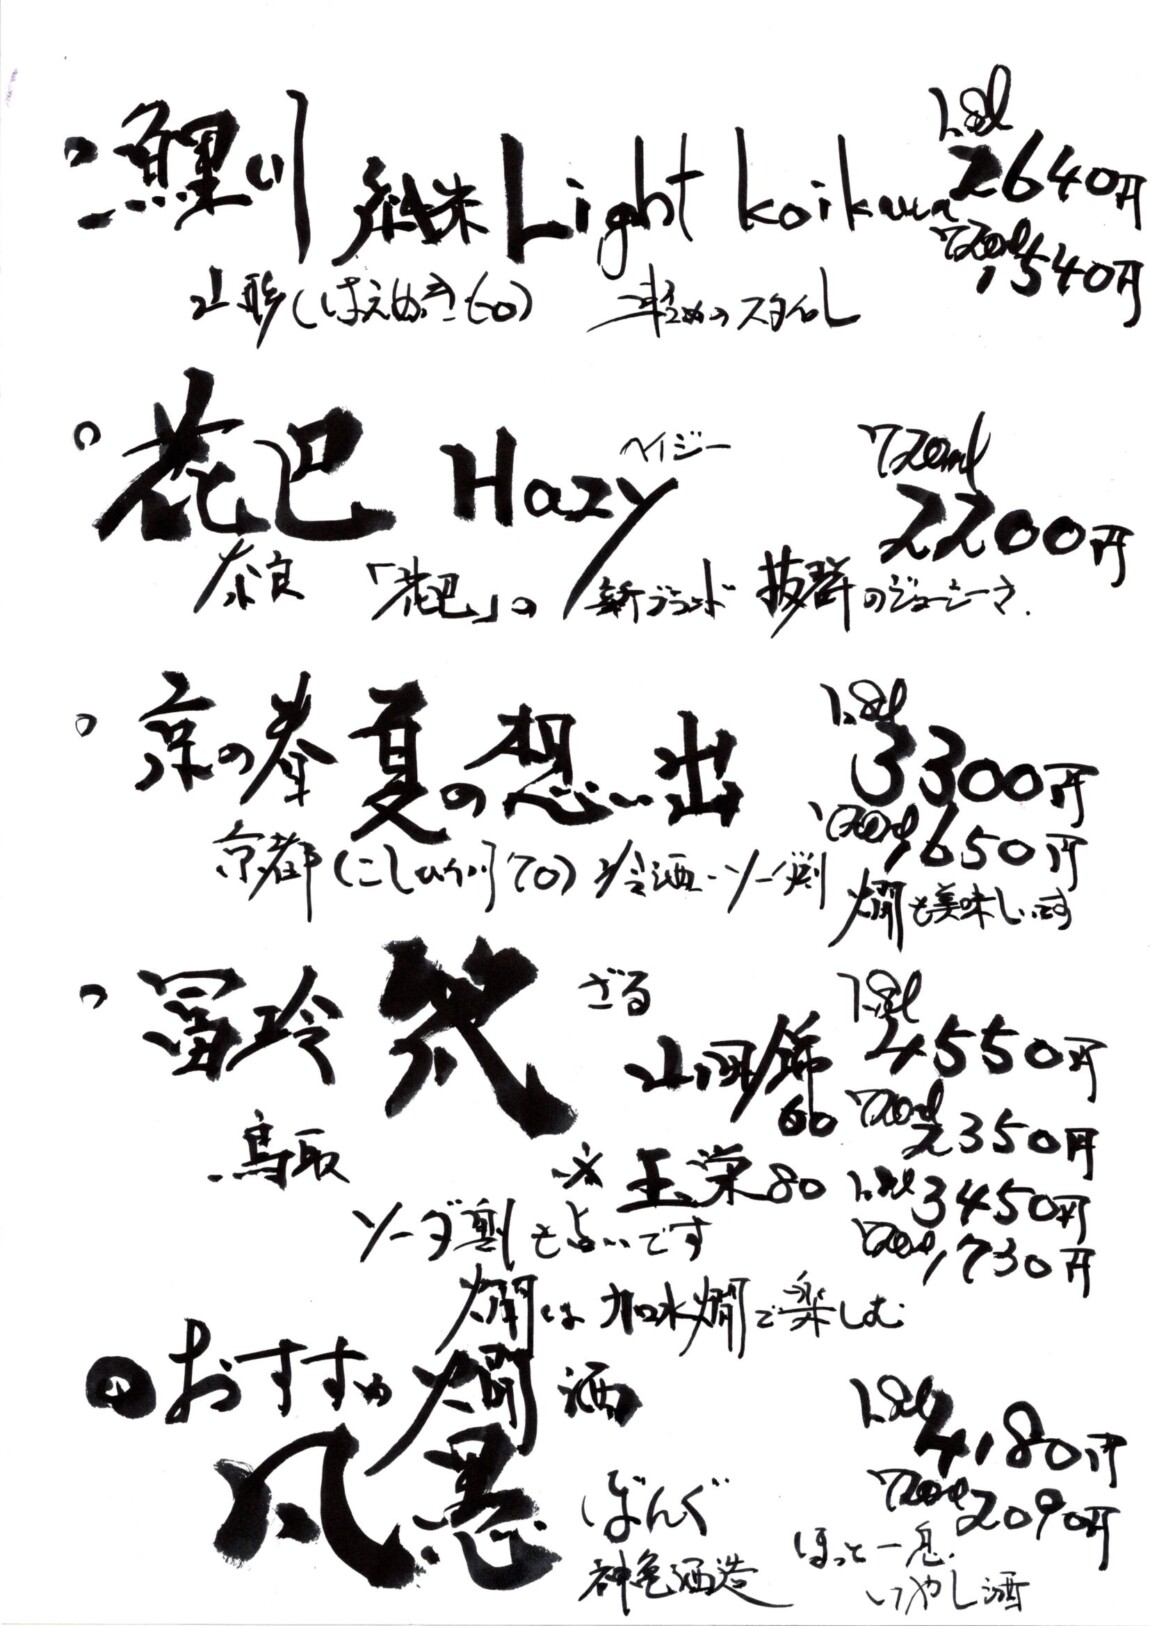 鯉川 純米 Light Koikawa 1.8l 2640円
720ml 1540円
山形(はえぬき60) 軽めのスタイル
花巴 Hazy ヘイジー 720ml 2200円
奈良 「花巴」の新ブランド 抜群のジューシーさ.
京の春 夏の想い出 1.8l 3300円
720ml 1650円
京都(こしひかり70) 冷酒・ソーダ割 燗も美味しいです
冨玲 笊 ざる 山田錦60 1.8l 4550円
720ml 2350円
鳥取 ※玉栄80 1.8l 3450円
720ml 1730円
ソーダ割も良いです
燗は加水燗で楽しむ
おすすめ燗酒
凡愚 ぼんぐ 1.8l 4180円
720ml 2090円
神亀酒造 ほっと一息.
いやし酒